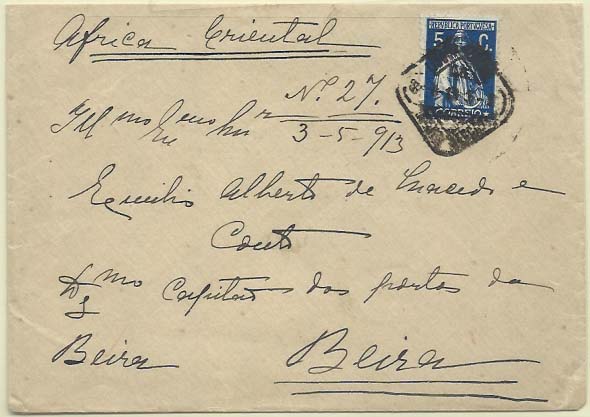 Africa Oriental
REPUBLICA PORTUGUESA
5 C.
CORREIO
Nº 27.
Illmo Exmo Snr 3-5-913
Emilio Alberto de Macedo e
Couto
Dgmo Capitão dos portos da
Beira Beira